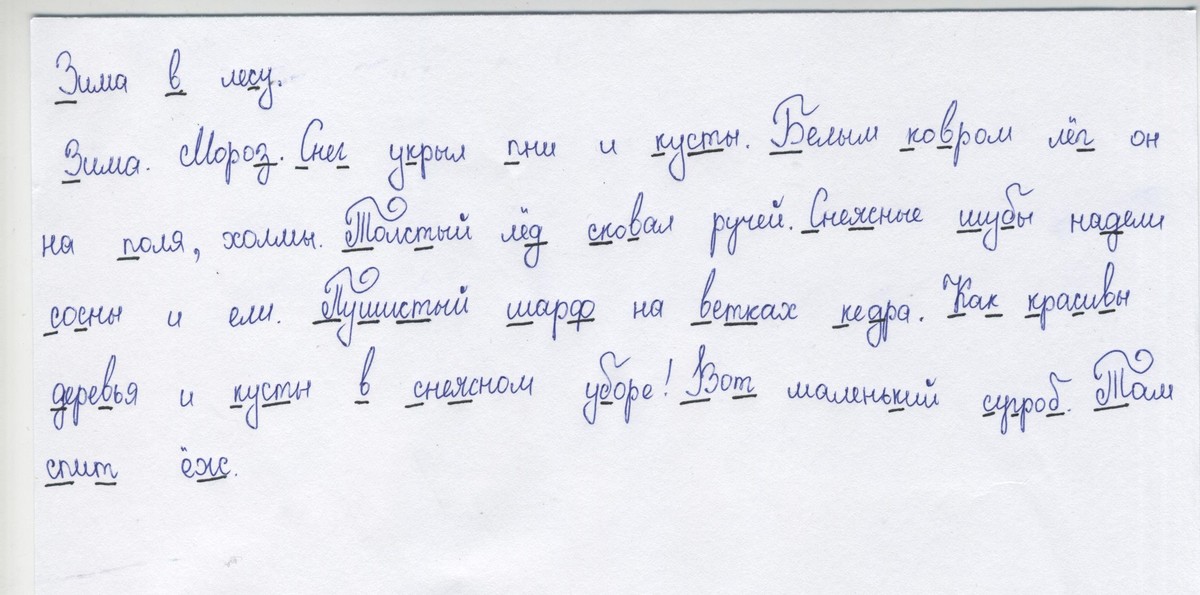 Зима в лесу.
Зима. Мороз. Снег укрыл пни и кусты. Белым ковром лёг он
на поля, холмы. Толстый лёд сковал ручей. Снежные шубы надели
сосны и ели. Пушистый шарф на ветках кедра. Как красивы
деревья и кусты в снежном уборе! Вот маленький сугроб. Там
спит ёж.